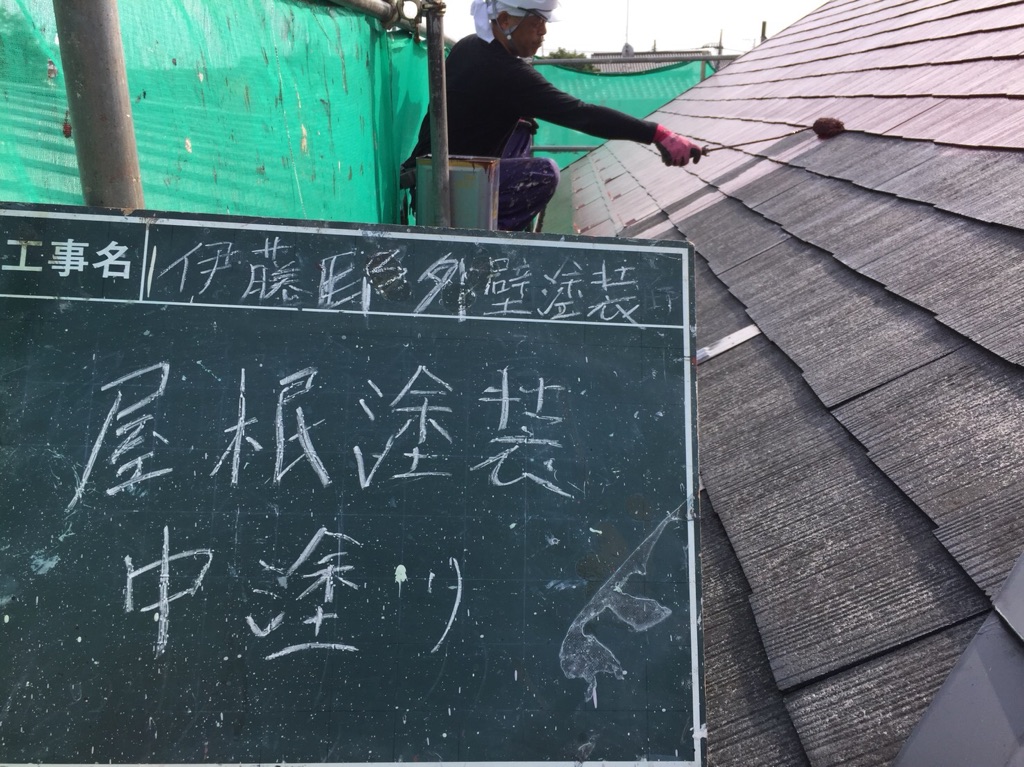 工事名 伊藤邸外壁塗装
屋根塗装
中塗り